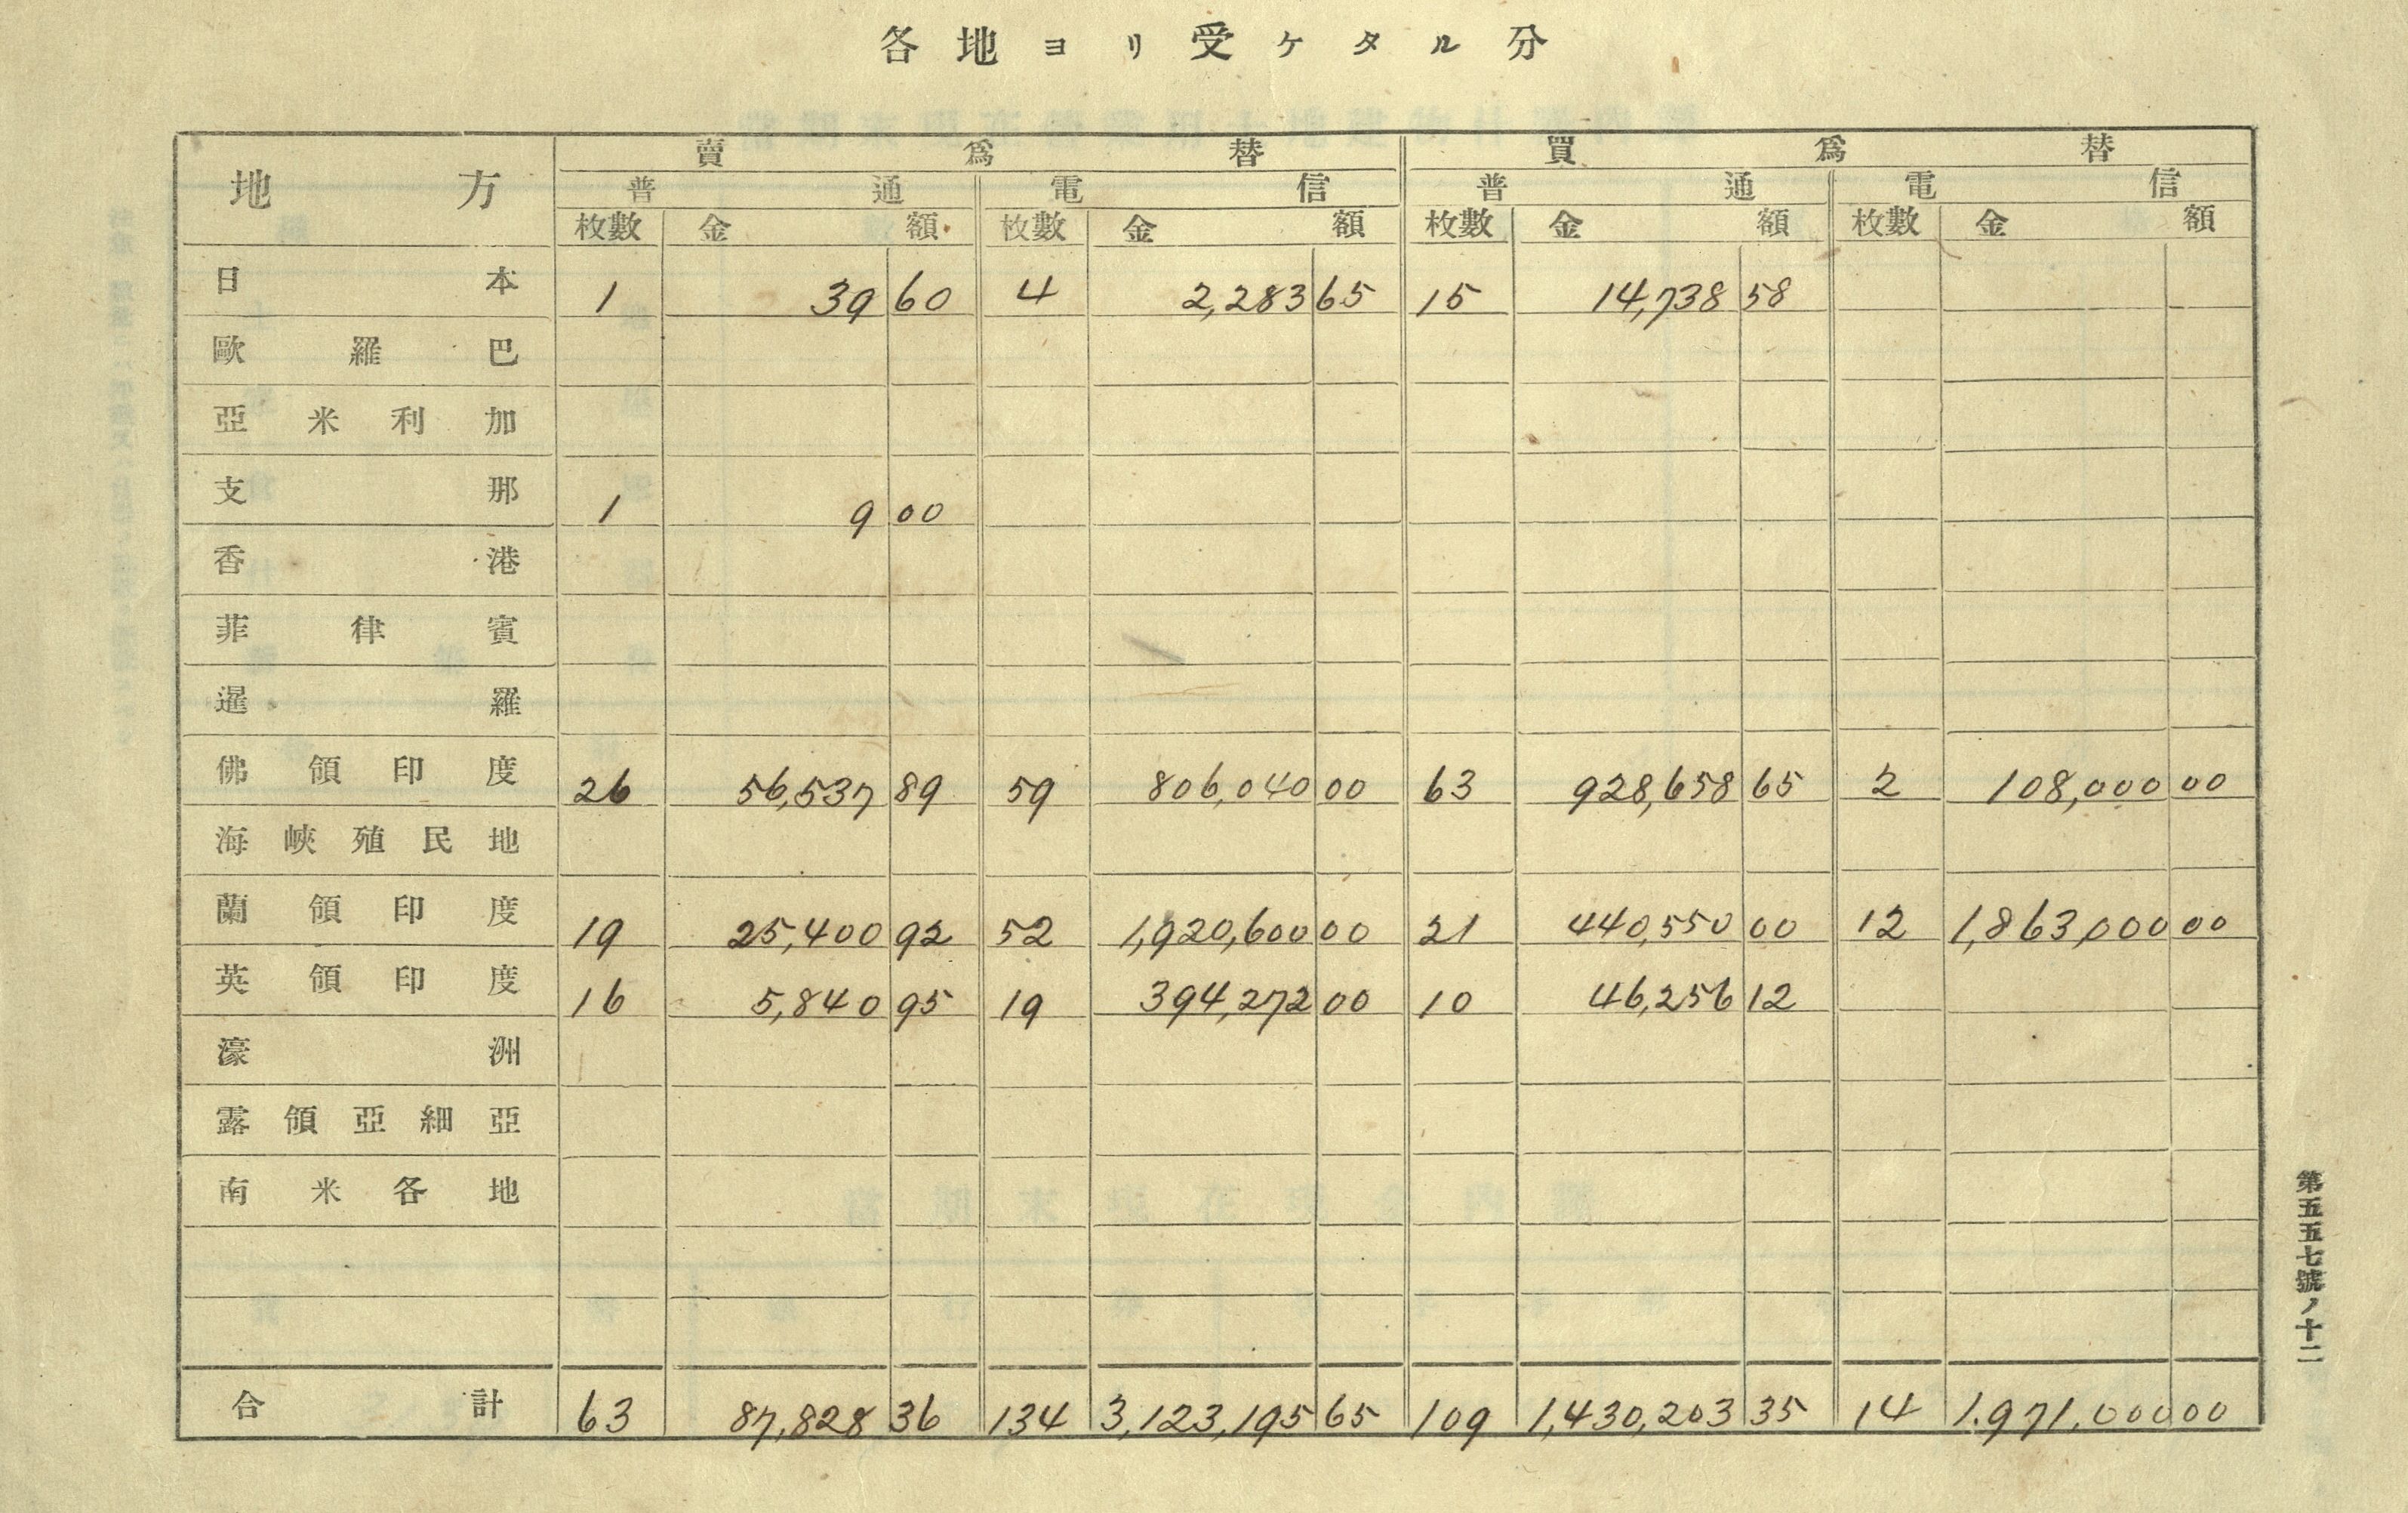 各地ヨリ受ケタル分
地方 賣爲替 買爲替
普通 電信 普通 電信
枚數 金額 枚數 金額 枚數 金額 枚數 金額
日本 1 39 60 4 2,283 65 15 14,738 58
歐羅巴
亞米利加
支那 1 9 00
香港
菲律賓
暹羅
佛領印度 26 56,537 89 59 806,040 00 63 928,658 65 2 108,000 00
海峽殖民地
蘭領印度 19 25,400 92 52 1,920,600 00 21 440,550 00 12 1,863,000 00
英領印度 16 5,840 95 19 394,272 00 10 46,256 12
濠洲
露領亞細亞
南米各地
合計 63 87,828 36 134 3,123,195 65 109 1,430,203 35 14 1.971.000 00
第五五七號ノ十二